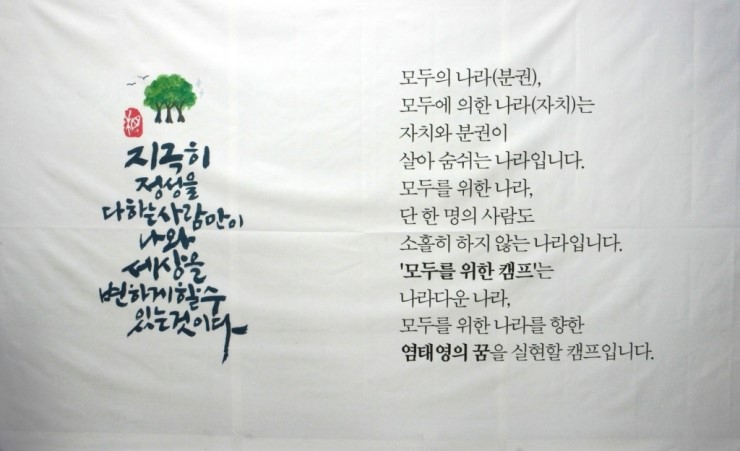 지극히
정성을
다하는 사람만이
나와
세상을
변하게 할 수
있는 것이다
모두의 나라(분권),
모두에 의한 나라(자치)는
자치와 분권이
살아 숨쉬는 나라입니다.
모두를 위한 나라,
단 한 명의 사람도
소홀히 하지 않는 나라입니다.
'모두를 위한 캠프'는
나라다운 나라,
모두를 위한 나라를 향한
염태영의 꿈을 실현할 캠프입니다.